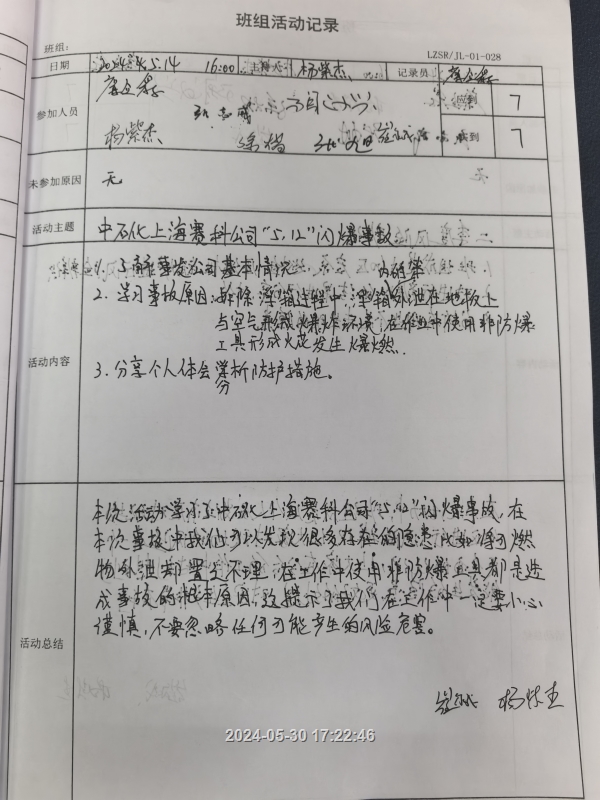 班组活动记录
班组：
LZSR/JL-01-028
日期 2024.5.14 16:00 主持人 杨紫杰 记录员
参加人员 应到 7
杨紫杰 实到 7
未参加原因 无
活动主题 中石化上海赛科公司“5.12”闪爆事故
活动内容
1. 了解事发公司基本情况
内残苯
2. 学习事故原因:拆除浮箱过程中,浮箱外泄在地板上
与空气形成爆炸环境,在作业中使用非防爆
工具形成火花发生爆燃.
3. 分享个人体会学析防护措施。
分
活动总结
本次活动学习了中石化上海赛科公司“5.12”闪爆事故,在
本次事故中我们可以发现很多存在的隐患,比如得可燃
物外泄却置之不理,在工作中使用非防爆工具都是造
成事故的根本原因,这提示了我们在工作中一定要小心
谨慎,不要忽略任何可能产生的风险危害。
2024-05-30 17:22:46